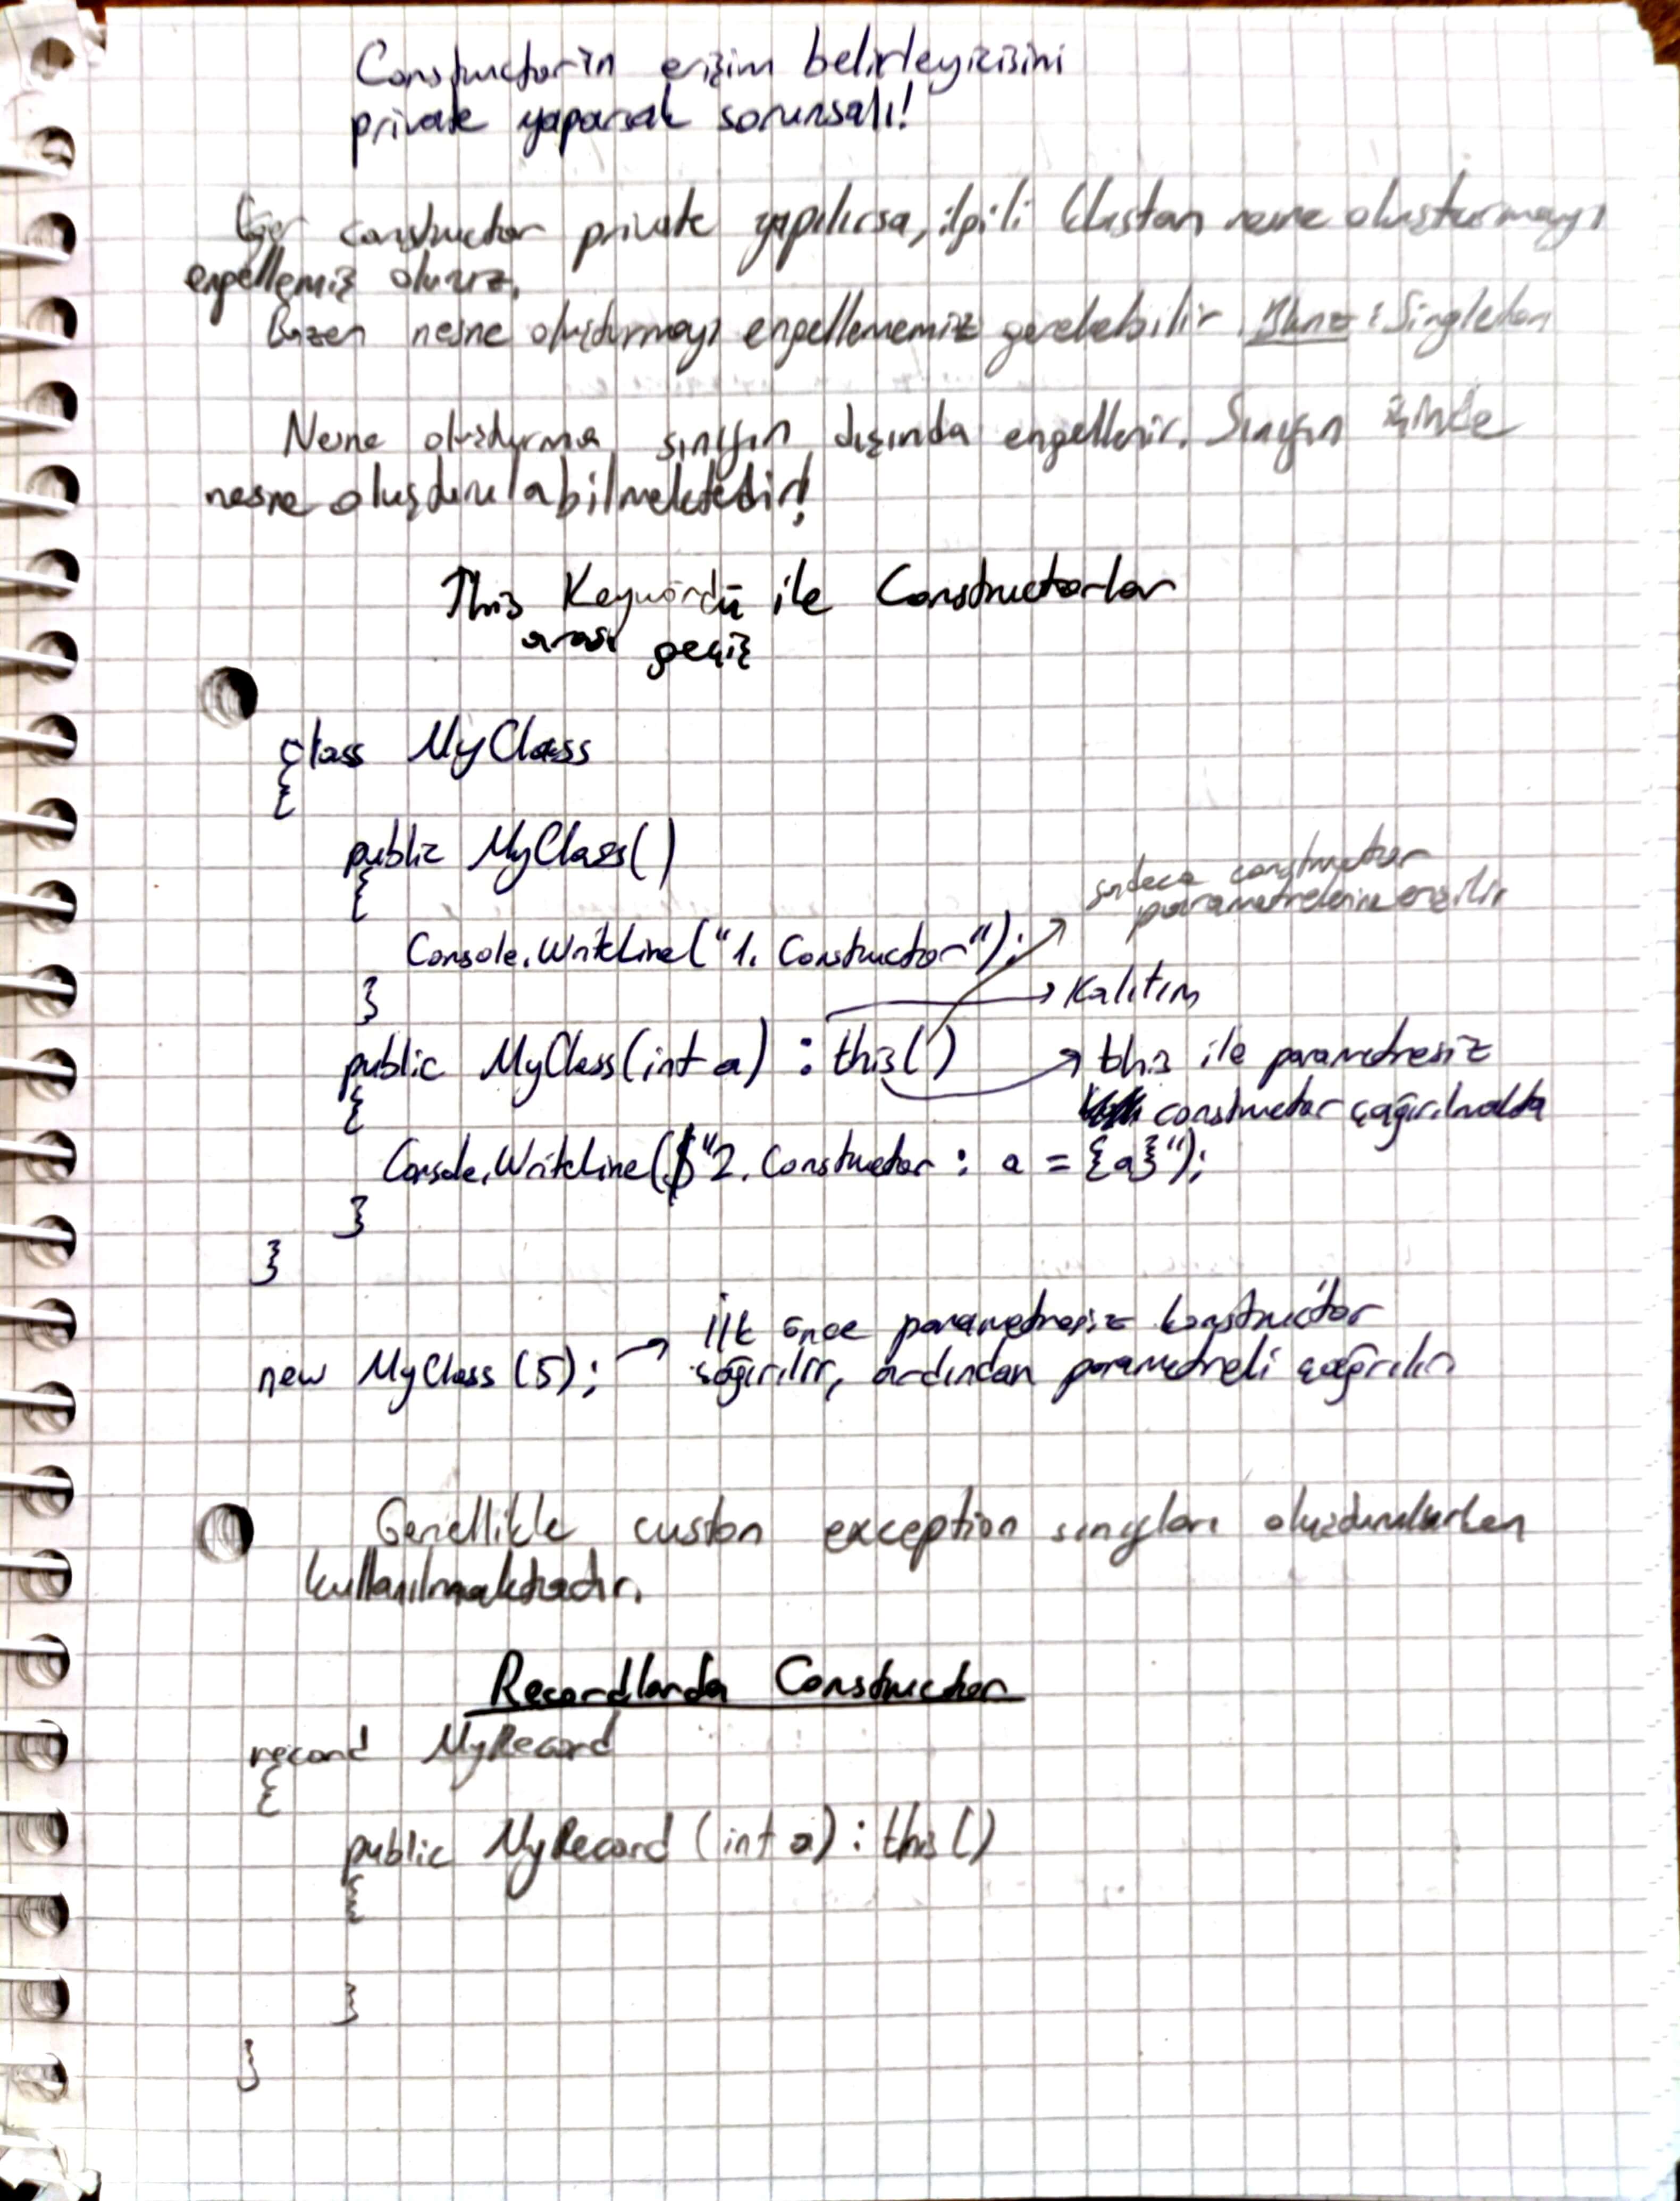 Constructor'ın erişim belirleyicisini
private yaparsak sorunsalı!
Eğer constructor private yapılırsa, ilgili klastan nesne oluşturmayı
engellemiş oluruz.
Bazen nesne oluşturmayı engellememiz gerekebilir. : Singleton
Nesne oluşturma sınıfın dışında engellenir. Sınıfın içinde
nesne oluşturulabilmektedir!
This Keywordü ile Constructorlar
arası geçiş
class MyClass
{
public MyClass()
{
Console.WriteLine("1. Constructor");
}
sadece constructor
parametrelerine erişilir
→ Kalıtım
public MyClass(int a) : this()
→ this ile parametresiz
constructor çağırılmakta
{
Console.WriteLine($"2. Constructor : a = {a}");
}
}
new MyClass (5); → İlk önce parametresiz konstructor
çağırılır, ardından parametreli çağrılır
Genellikle custom exception sınıfları oluşturulurken
kullanılmaktadır.
Recordlarda Constructor
record MyRecord
{
public MyRecord (int a) : this()
{
}
}